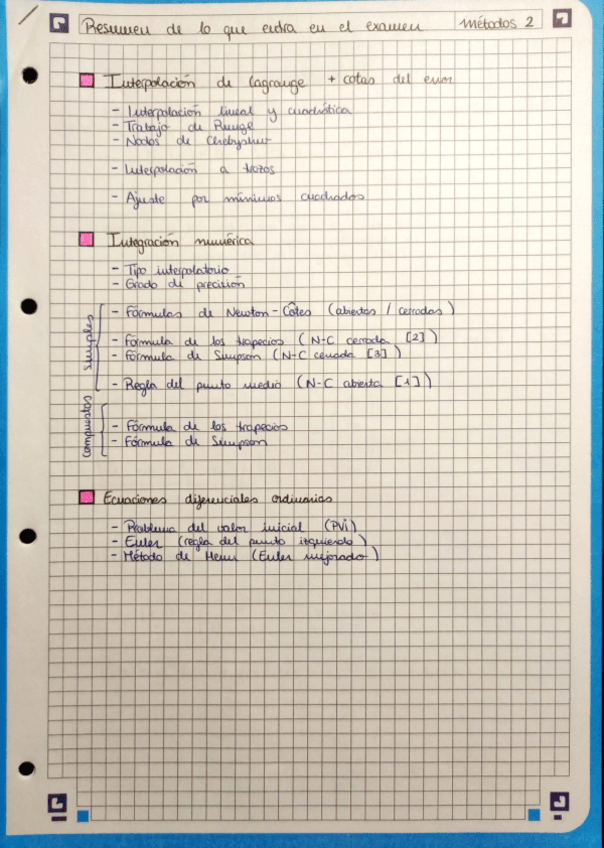 Resumen de lo que entra en el examen Métodos 2
Interpolación de Lagrange + cotas del error
- Interpolación lineal y cuadrática
- Trabajo de Runge
- Nodos de Chebyshev
- Interpolación a trozos
- Ajuste por mínimos cuadrados
Integración numérica
- Tipo interpolatorio
- Grado de precisión
simples
- Fórmulas de Newton-Côtes (abiertas / cerradas)
- Fórmula de los trapecios (N-C cerrada [2])
- Fórmula de Simpson (N-C cerrada [3])
- Regla del punto medio (N-C abierta [1])
compuestas
- Fórmula de los trapecios
- Fórmula de Simpson
Ecuaciones diferenciales ordinarias
- Problema del valor inicial (PVi)
- Euler (regla del punto izquierdo)
- Método de Heun (Euler mejorado)